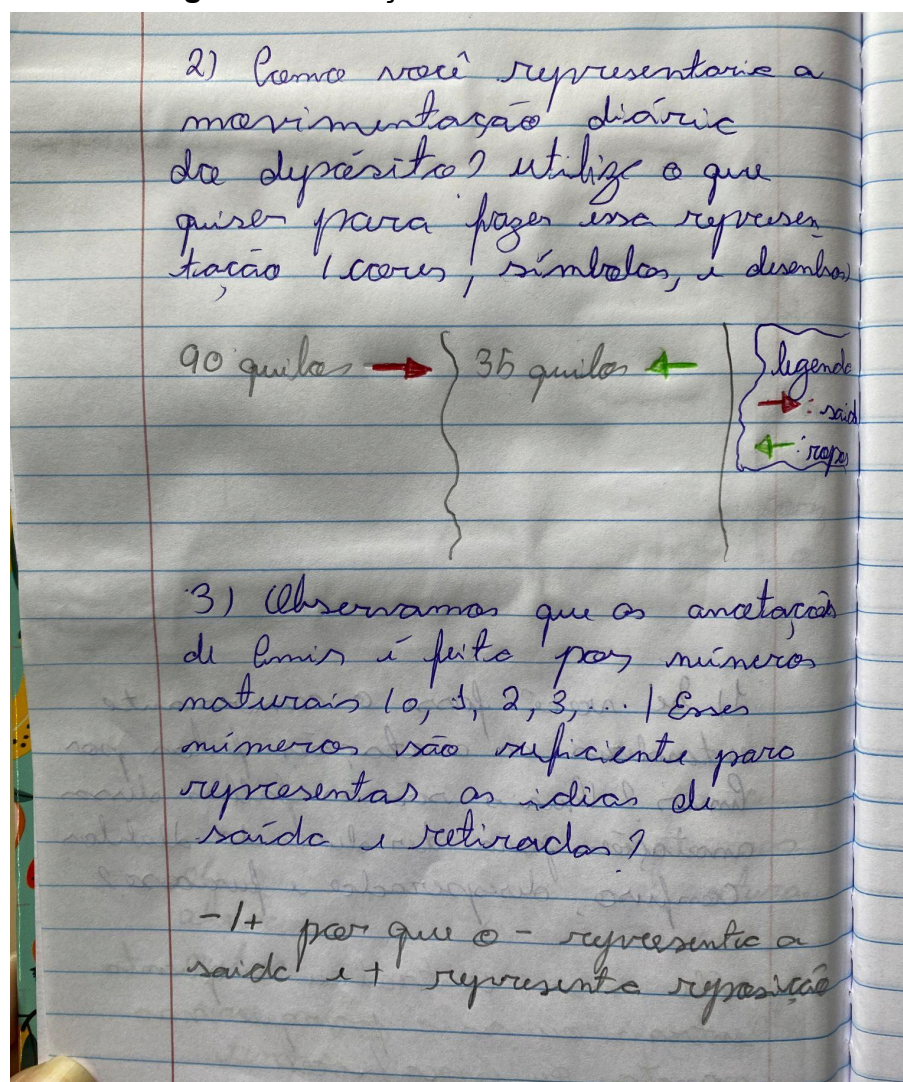 2) Como você representaria a
movimentação diária
do depósito? utilize o que
quiser para fazer essa represen
tação (cores, símbolos, e desenhos)
90 quilos → 35 quilos ← legenda
→ : said
← : repos
3) Observamos que as anotações
de Emis é feito por números
naturais (0, 1, 2, 3, ...) Esses
números são suficiente para
representas as idias de
saída e retiradas?
-/+ por que o - representa a
saida e + representa reposição